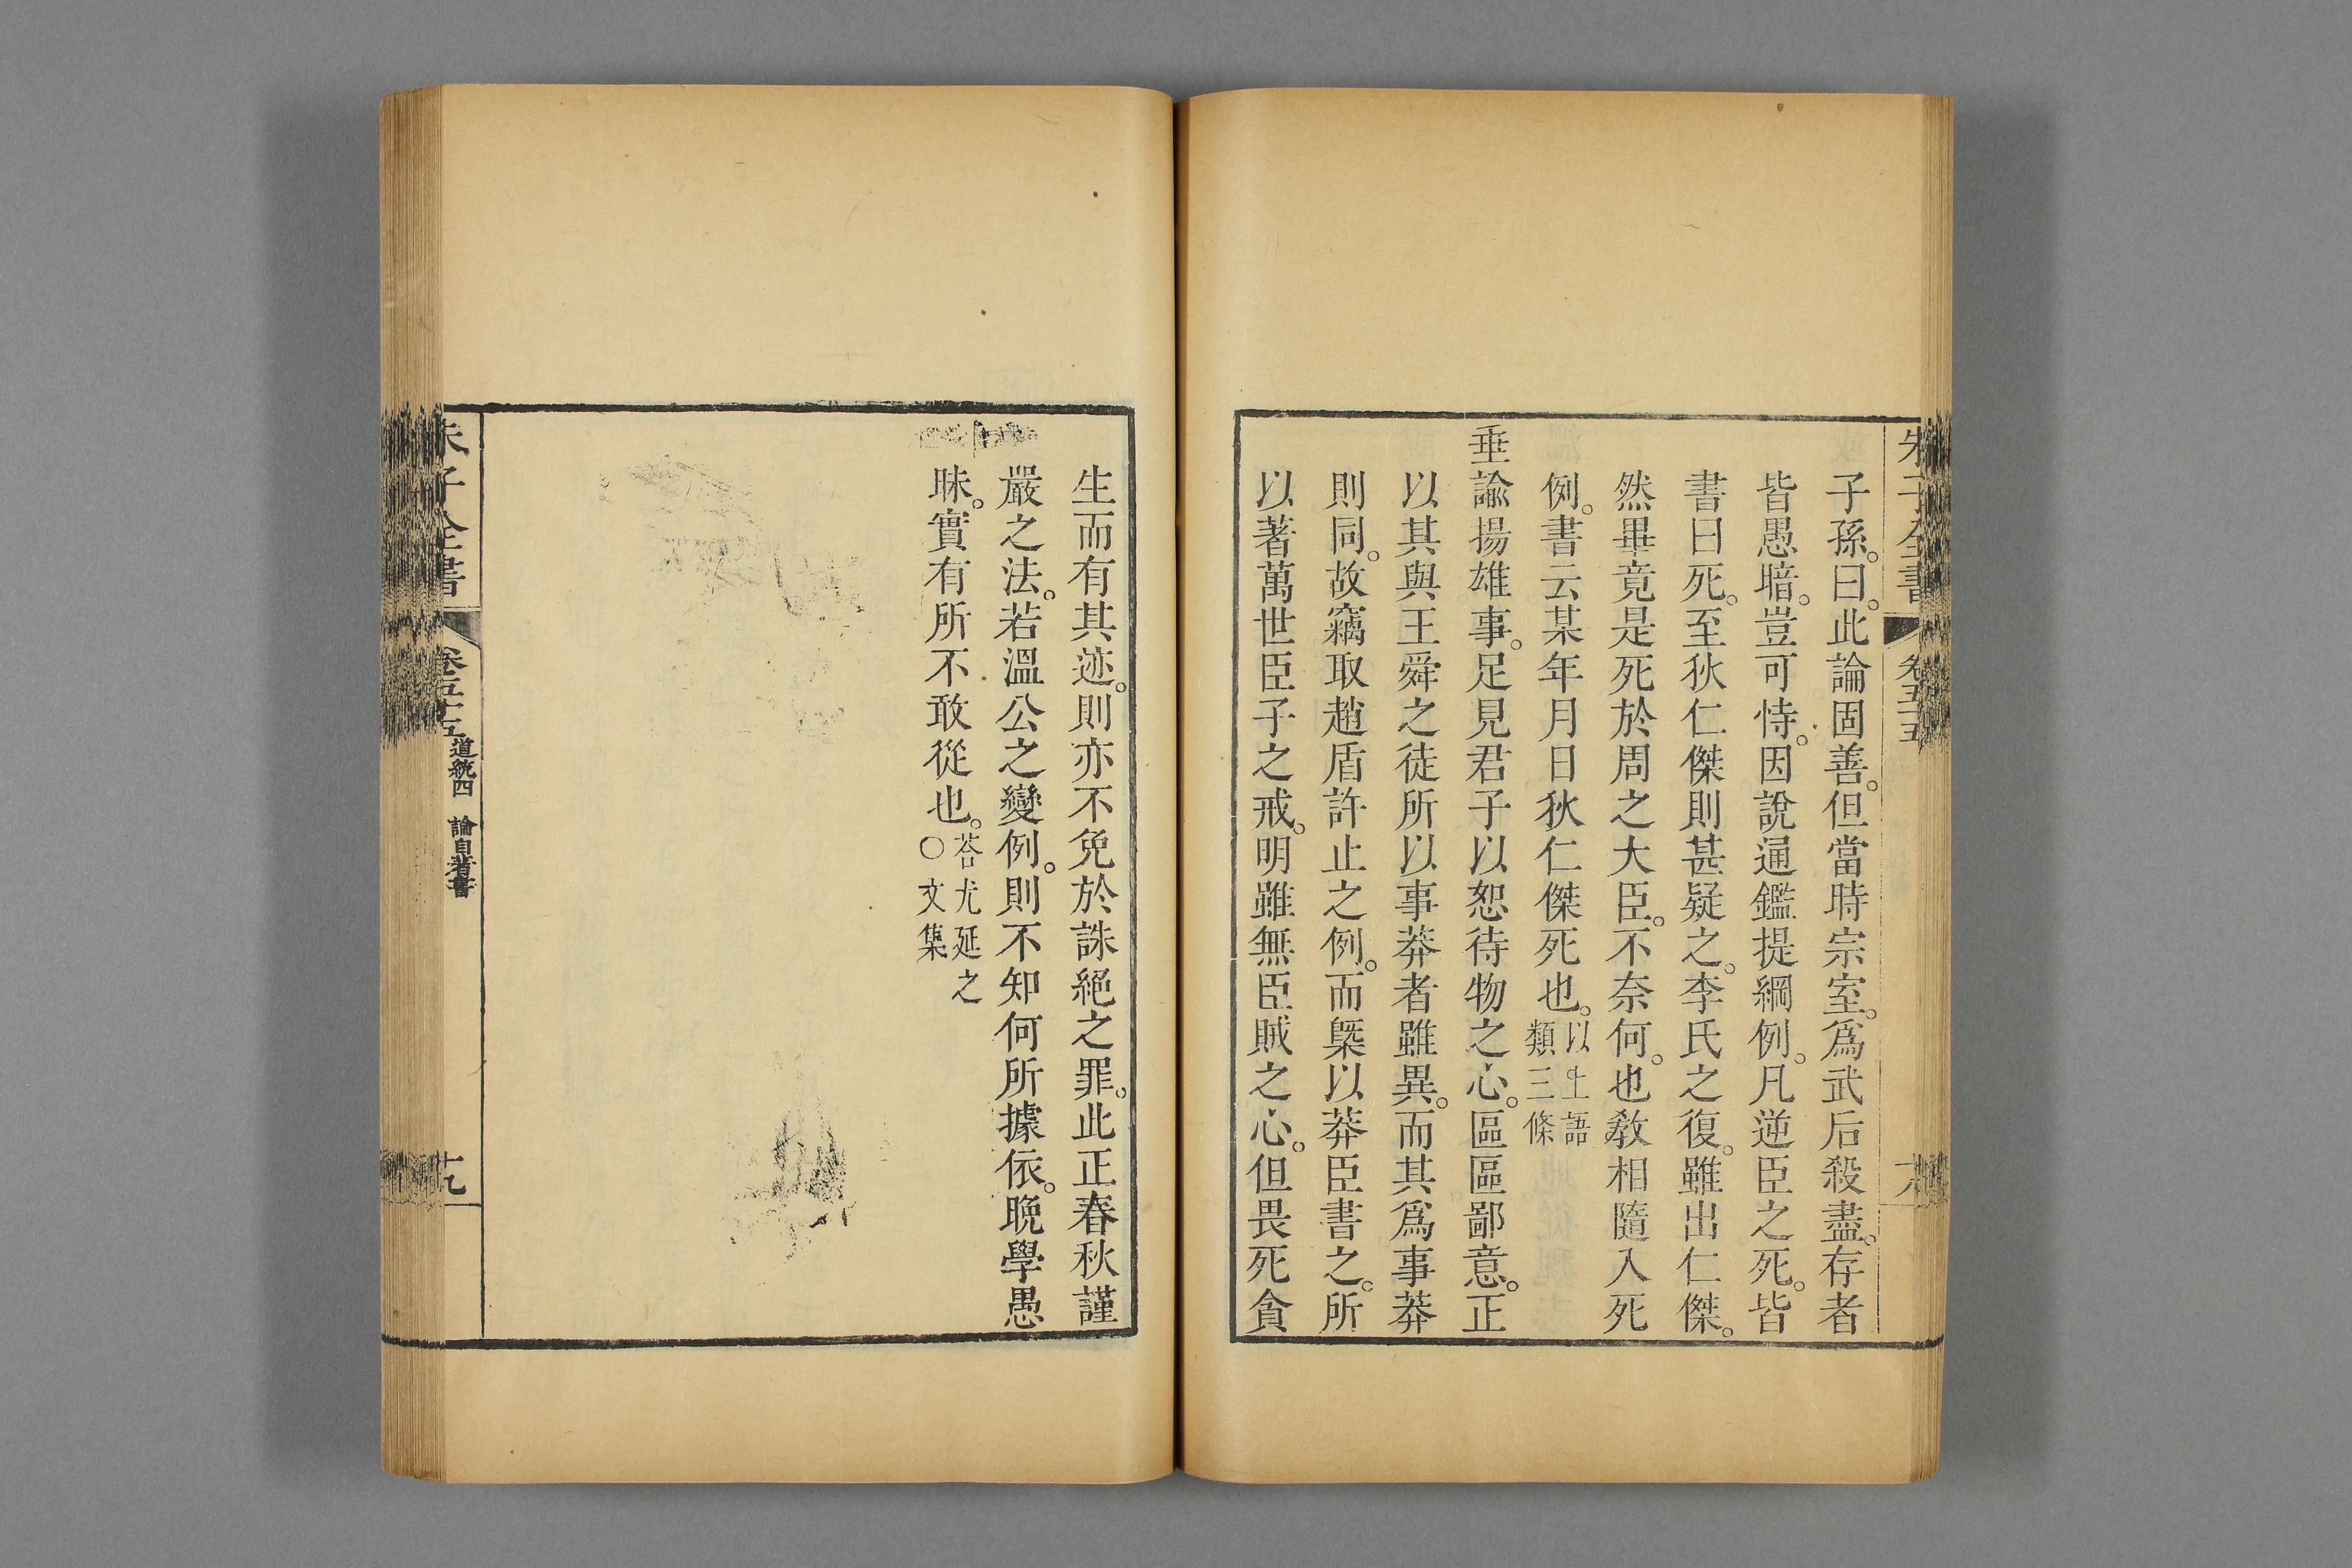 朱子全書 卷五十五
子孫。曰。此論固善。但當時宗室。爲武后殺盡。存者
皆愚暗。豈可恃。因說通鑑提綱例。凡逆臣之死。皆
書曰死。至狄仁傑則甚疑之。李氏之復。雖出仁傑。
然畢竟是死於周之大臣。不奈何。也敎相隨入死
例。書云某年月日狄仁傑死也。以上語類三條
垂諭揚雄事。足見君子以恕待物之心。區區鄙意。正
以其與王舜之徒所以事莽者雖異。而其爲事莽
則同。故竊取趙盾許止之例。而槩以莽臣書之。所
以著萬世臣子之戒。明雖無臣賊之心。但畏死貪
生而有其迹。則亦不免於誅絕之罪。此正春秋謹
嚴之法。若溫公之變例。則不知何所據依。晚學愚
昧。實有所不敢從也。荅尤延之○文集
朱子全書 卷五十五 道統四 論自著書